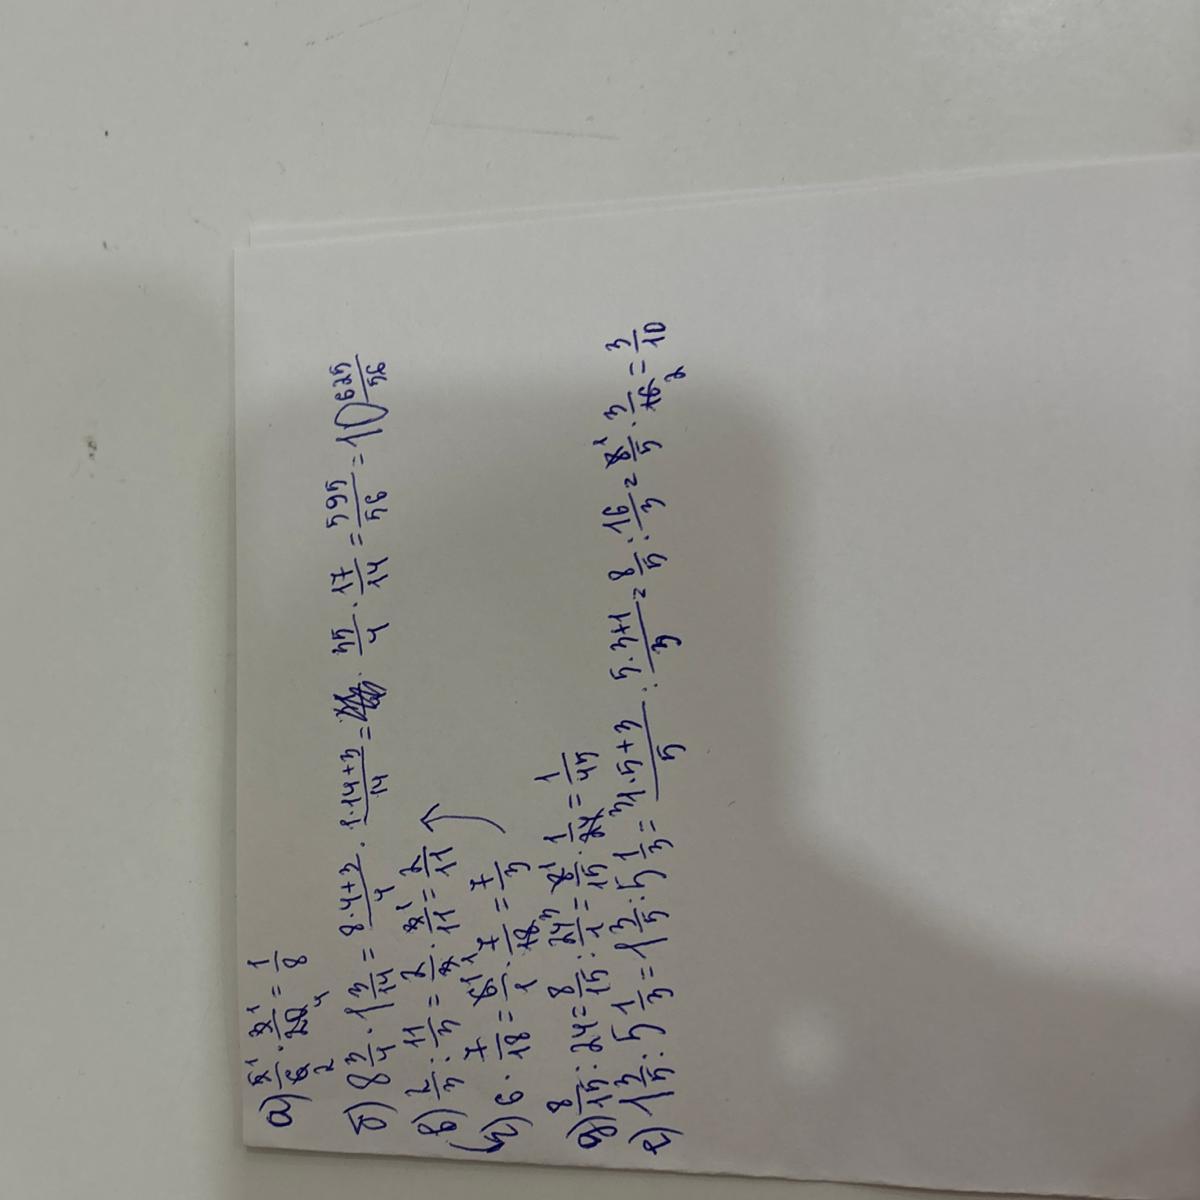 а) 5¹/6₂ · 3¹/20₄ = 1/8
б) 8 3/4 · 1 3/14 = 8·4+3/4 · 1·14+3/14 = · 35/4 · 17/14 = 595/56 = 10 625/56
в) 2/3 : 11/3 = 2/3 · 3¹/11 = 2/11
г) 6 · 7/18 = 6¹/1 · 7/18₃ = 7/3
д) 8/15 : 24 = 8/15 : 24/1 = 8¹/15 · 1/24₃ = 1/45
е) 1 3/5 : 5 1/3 = 1 3/5 : 5 1/3 = 1·5+3/5 : 5·3+1/3 = 8/5 : 16/3 = 8¹/5 · 3/16₂ = 3/10